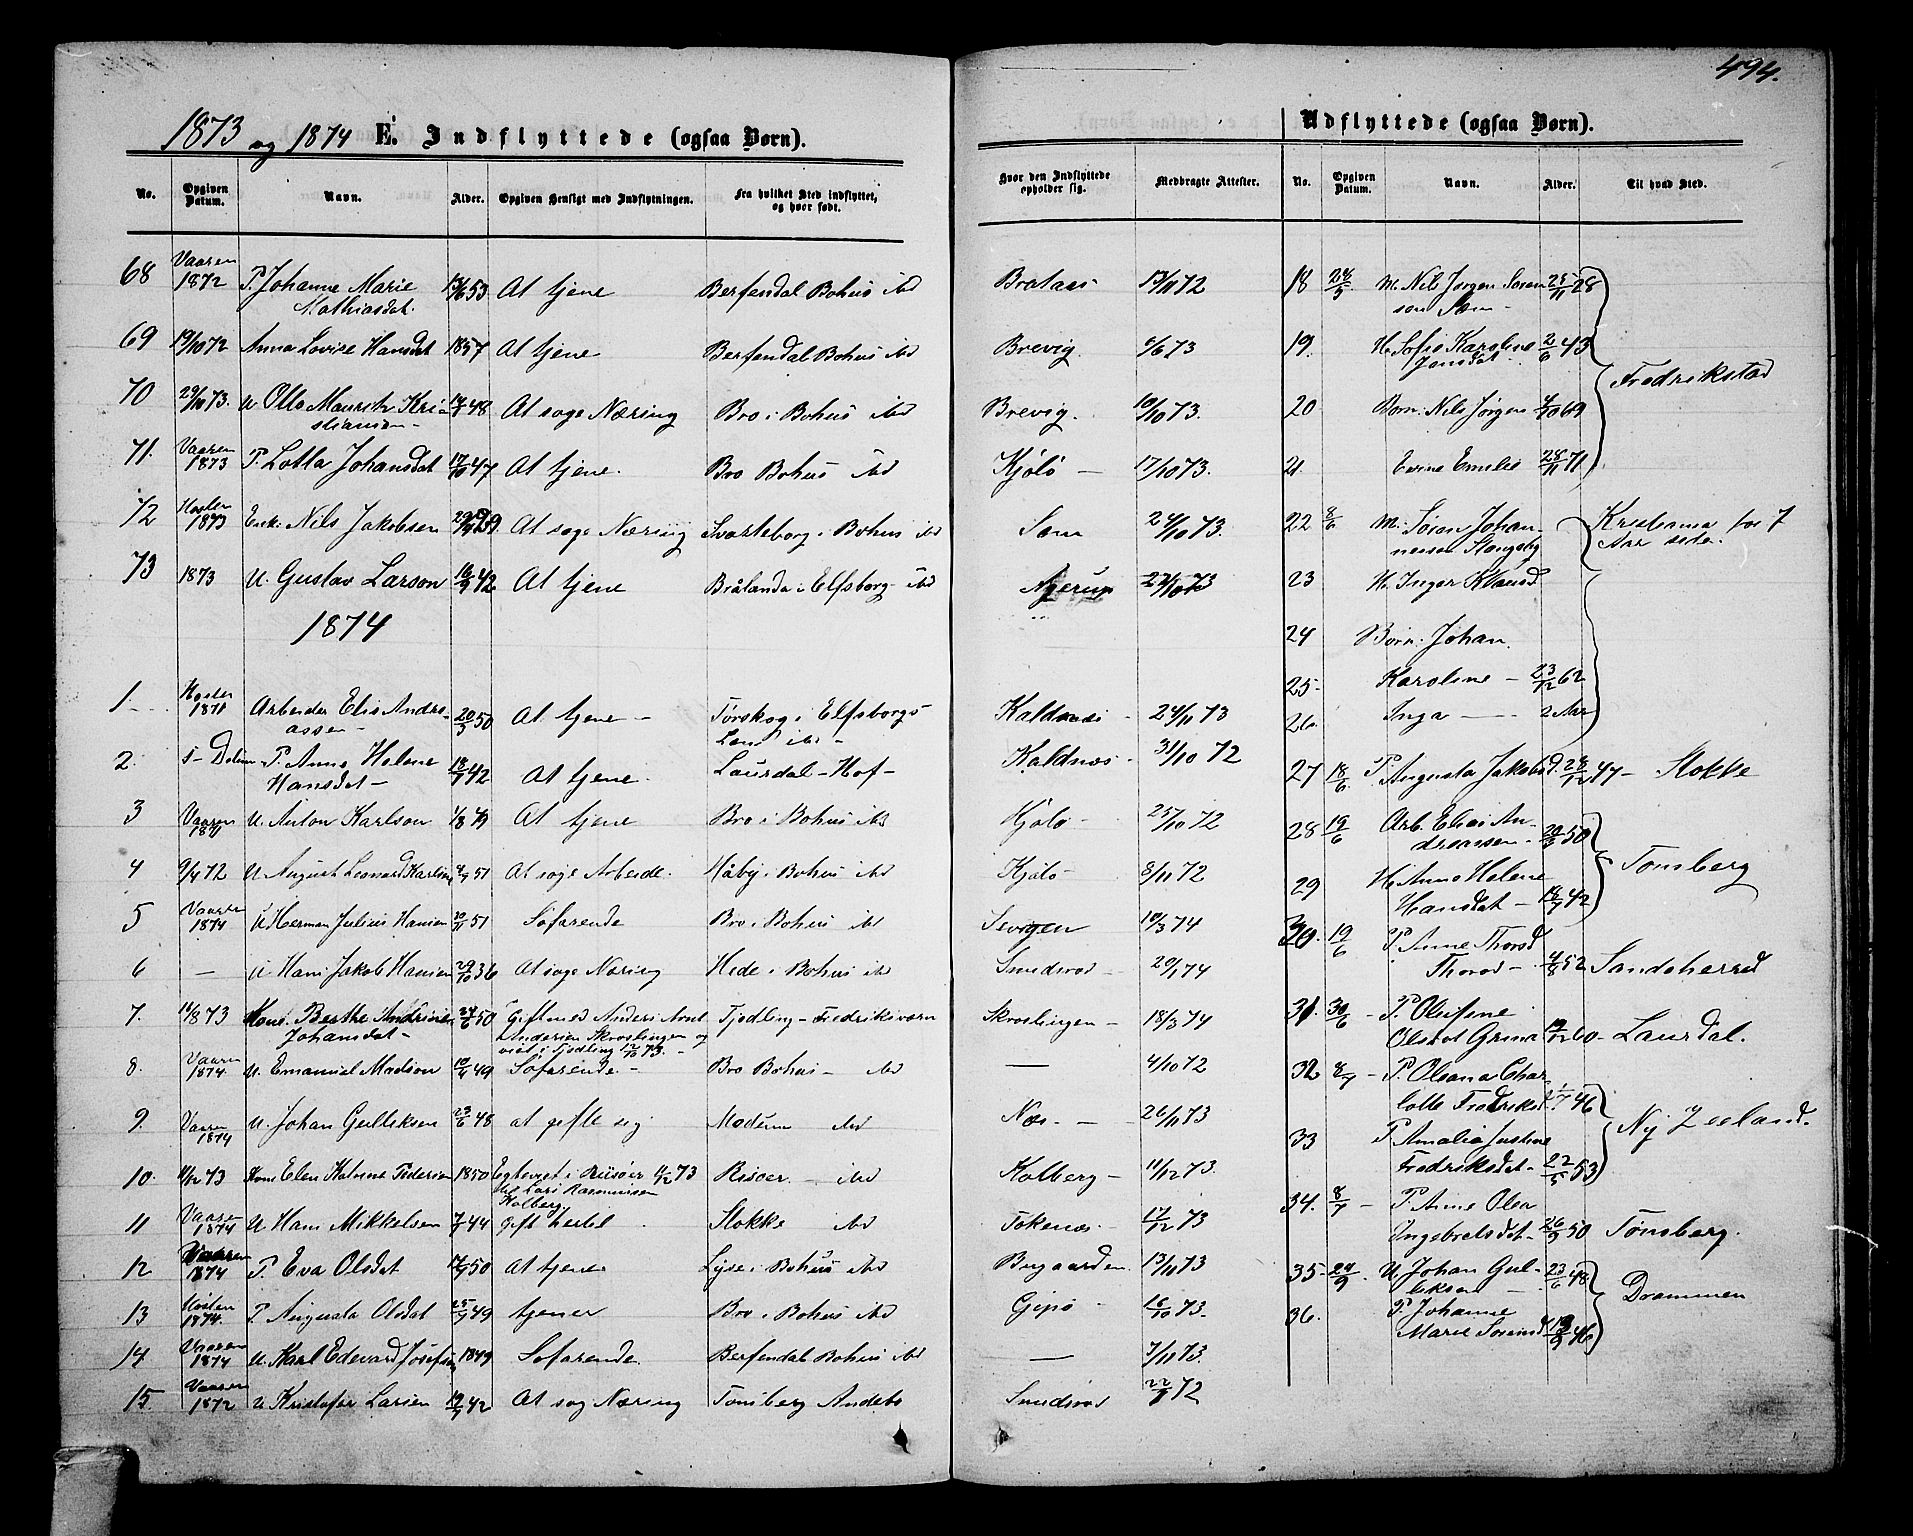 494.
1873 og 1874 E. Indflyttede (ogsaa Børn).
No. Opgiven Datum. Navn. Alder. Opgiven Hensigt med Indflytningen. Fra hvilket Sted indflyttet, og hvor født. Hvor den Indflyttede opholder sig. Medbragte Attester.
68 Vaaren 1872 P. Johanne Marie Mathiasdat. 53 At tjene Berfendal Bohus ibd Brataas 72
69 19/10 72 Anna Lovise Hansdat 1857 At tjene Berfendal Bohus ibd Brevig. 5/6 73
70 29/10 73. U Otto Mauritz Kristiansen 48 At søge Næring Bro i Bohus ibd Brevig. 10/10 73.
71. Vaaren 1873 P. Lotta Johansdat 17/10 47 At tjene. Bro Bohus ibd Kjølø — 17/10 73.
72 Høsten 1873 Enk. Nils Jakobsen 39 At søge Næring Svarteborg i Bohus ibd Søm 24/10 73.
73 1873 U. Gustav Larson 16/9 42 At tjene Brålanda i Elfsborg ibd 22/10 73
1874
1 Høsten 1871 Arbeider Elis Andreassen — 20/3 50 At tjene — Tørskog i Elfsborgs Læn ibd — Kaldnæs — 24/11 73
2. P. Anne Helene Hansdat — 18/7 42 At tjene. Laurdal — Hof — Kaldnæs — 31/10 72
3 Vaaren 1871 U. Anton Karlson 4/8 49 At tjene Bro i Bohus ibd Kjølø 25/10 72
4 9/4 72 U August Leonard Karlson 51 At søge Arbeide. Håby i Bohus ibd Kjølø — 8/11 72
5 Vaaren 1874 U Herman Julius Hansen 51 Søfarende Bro i Bohus ibd 10/3 74
6 — U Hans Jakob Hansen 29/10 36 At søge Næring Hede i Bohus ibd Smidsrød — 20/1 74
7. 11/8 73 Kone. Berthe Andrine Johansdat — 50 Gift med Anders Arnt Andersen Skrøslingen og viet i Tjødling 12/10 73. — Tjødling — Fredriksværn Skrøslingen — 18/3 74
8. Vaaren 1874. U. Emanuel Madson 49 Søfarende — Bro Bohus — ibd — 4/10 72
9. Vaaren 1874 U. Johan Gulliksen 23/6 48 at gifte sig Modum ibd Næs — 26/11 73
10. 11/12 73 Kone Elen Katrine Pedersen 1850 Egteviet i Riisøer 11/12 73 til Lars Rasmussen Holberg Risøer — ibd Holberg — 11/12 73.
11 Vaaren 1874 U Hans Mikkelsen 44 gift hertil Stokke ibd Tokenæs — 17/12 73
12 Vaaren 1874 P. Eva Olsdat 50 At tjene Lyse i Bohus ibd Bugaarden 13/10 73
13 Høsten 1874. P Augusta Olsdat 25/9 49 tjener Bro i Bohus ibd Gipø — 16/10 73.
14 Vaaren 1874 U. Karl Edevard Josefsen 1849 Søfarende Berfendal Bohus ibd — 7/11 73.
15 Vaaren 1872 U Kristofer Larsen 42 At søg Næring Tønsberg Andebo Smidsrød 72
Udflyttede (ogsaa Børn).
No. Opgiven Datum. Navn. Alder. Til hvad Sted.
18 M. Nils Jørgen Sørensen Søm — 28
19. H. Sofie Karoline Jensdat 2/6 43 Fredrikstad
20 Børn. Nils Jørgen 69
21 Emilie 28/11 71
22 8/6 M. Søren Johannessen Slangsby Kristiania for 7 Aar siden.
23 H. Inger
24 Børn. Johan
25 Karoline — 23/12 62
26 Inga — 2 Aar
27 18/6 P. Augusta Jakobsd. 28/12 47 — Stokke
28 19/6 Arb. Elias Andreassen 50 Tønsberg
29 H. Anne Helene Hansdat — 18/7 42
30. 19/6 P. Anne Thorsd Thorød — 4/8 52 Sandeherred
31. 30/6 P. Olufine Olsdat 60 — Laurdal.
32 8/7 — P. Olsana Charlotte Fredriksd. 46 Ny Zeeland.
33 P Amalia Justine Fredriksdat — 22/5 53
34. 8/7 — P. Anne Olea Ingebretsdat — 26/9 50 Tønsberg.
35 — U. Johan Gulliksen — 23/6 48 Drammen
36. P. Johanne Marie Sørensd. 46